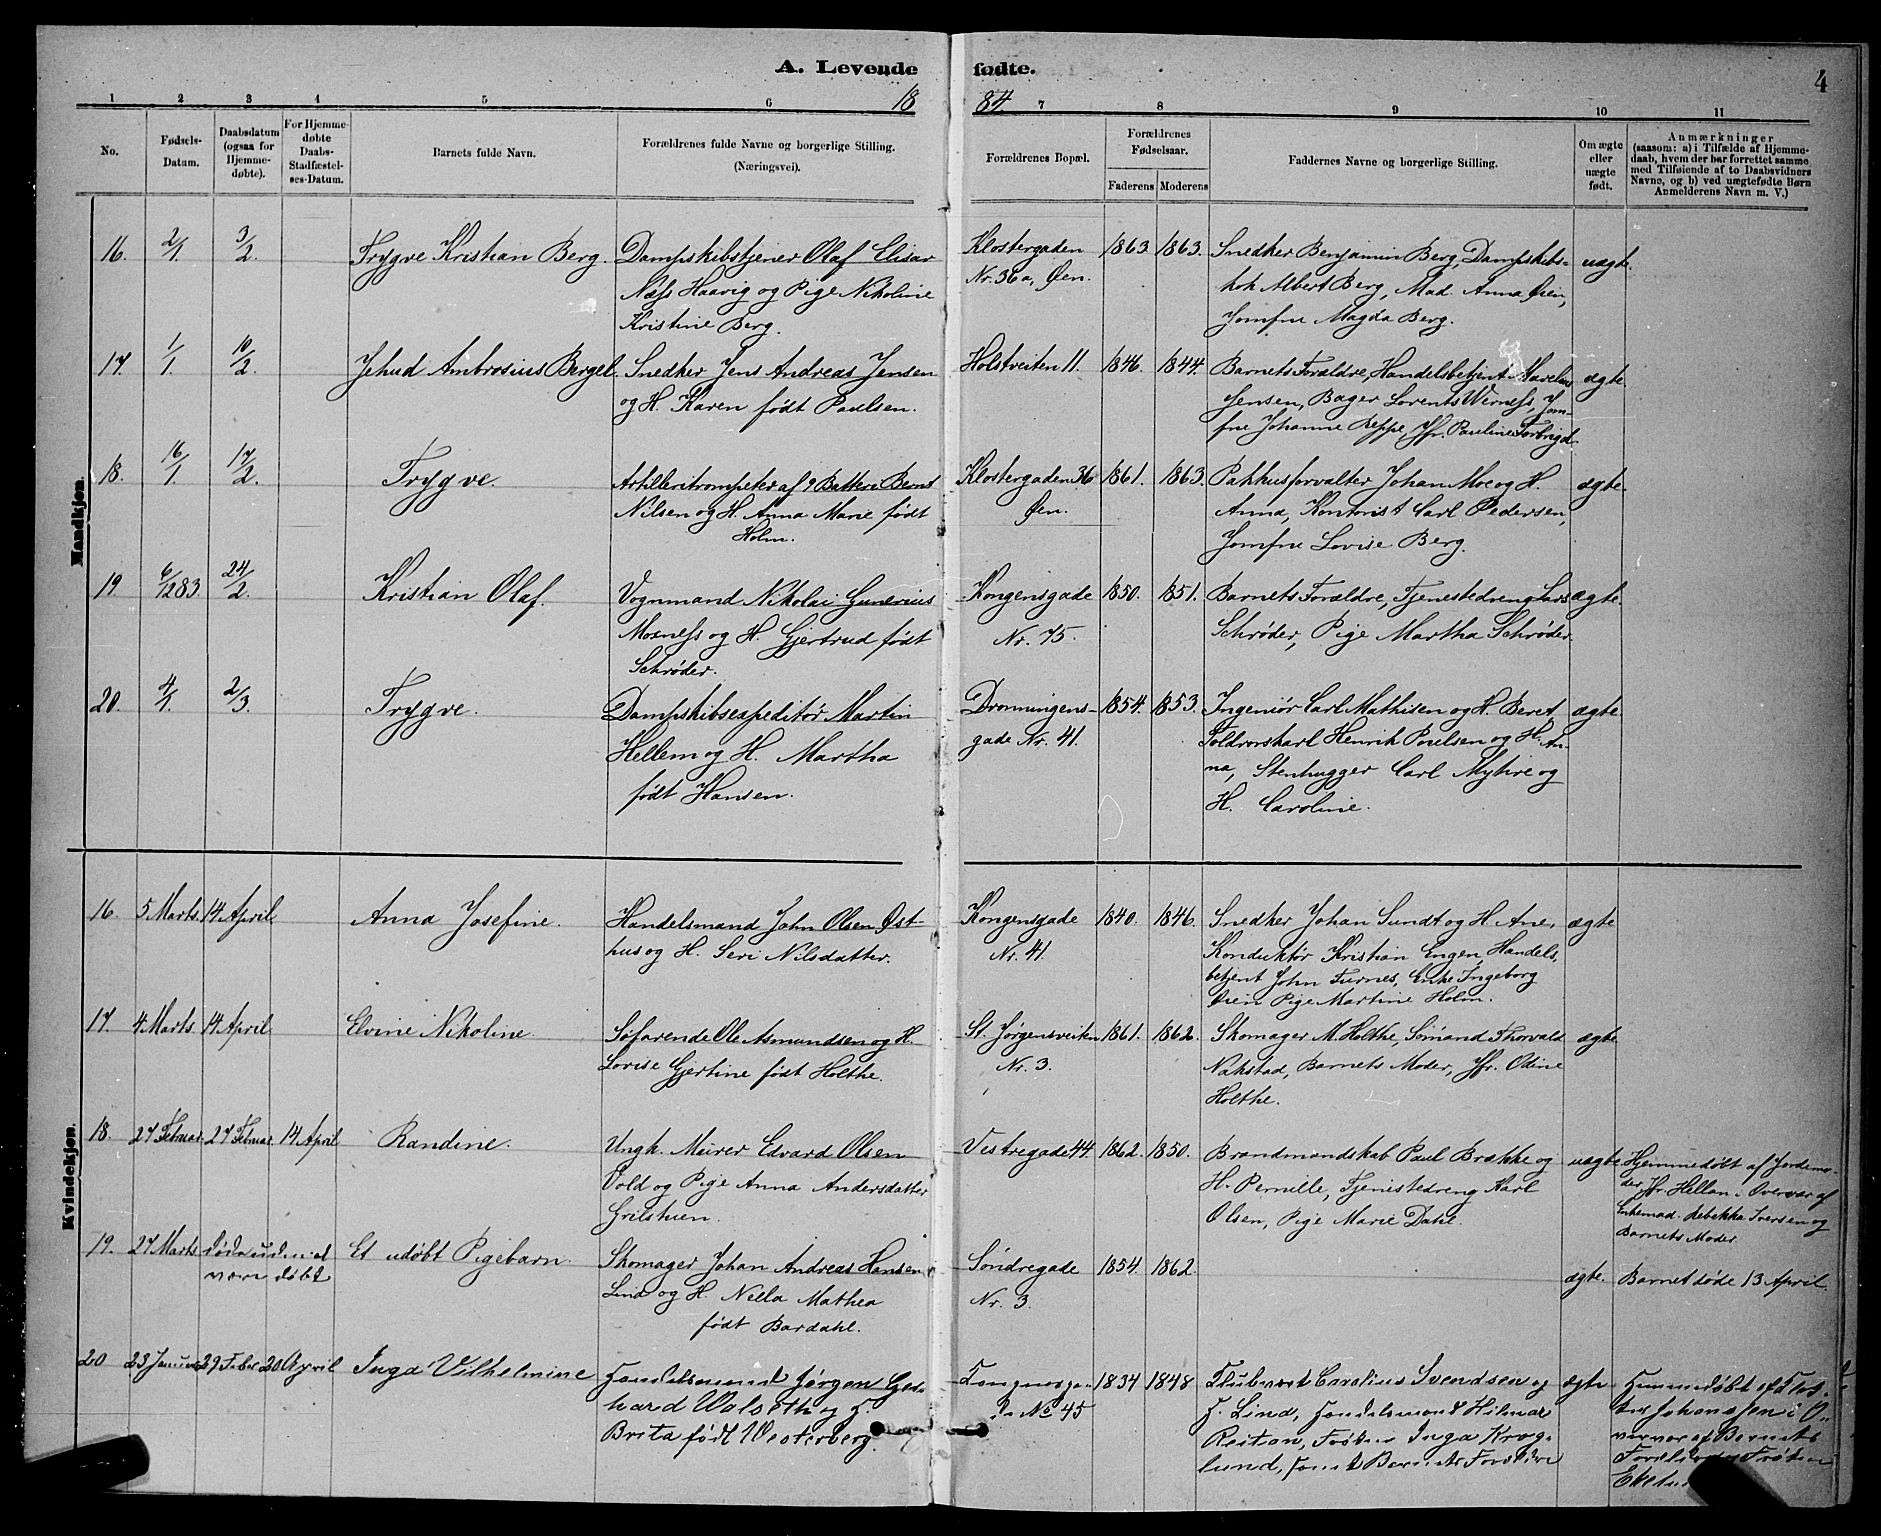 A. Levende fødte.
4
18 84.
1 2 3 4 5 6 7 8 9 10 11
No.
Fødsels-Datum.
Daabsdatum (ogsaa for Hjemmedøbte).
For Hjemmedøbte Daabs-Stadfæstelses-Datum.
Barnets fulde Navn.
Forældrenes fulde Navne og borgerlige Stilling. (Næringsvei).
Forældrenes Bopæl.
Forældrenes Fødselsaar.
Faderens Moderens
Faddernes Navne og borgerlige Stilling.
Om ægte eller uægte født.
Anmærkninger
(saasom: a) i Tilfælde af Hjemmedaab, hvem der har forrettet samme med Tilføiende af to Daabsvidners Navne, og b) ved uægtefødte Børn Anmelderens Navn m. V.)
Mandkjøn.
16. 2/1 3/2. Trygve Kristian Berg. Dampskibstjener Olaf Elisar
Næss Haavig og Pige Nikoline
Kristine Berg.
Klostergaden
Nr. 36a, Øen.
1863 1863. Snedker Benjamin Berg, Dampskibs-
kok Albert Berg, Mad. Anna Øien,
Jomfru Magda Berg.
uægte.
17. 1/1. 10/2. Jehud Ambrosius Bergel. Snedker Jens Andreas Jensen
og H. Karen født Paulsen.
Holstveiten 11. 1846. 1844. Barnets Forældre, Handelsbetjent Marelius
Jensen, Bager Lorents Werness, Jom-
fru Johanne Reppe, Jfr. Pauline Forbrigd.
ægte.
18. 16/1 17/2. Trygve. Artilleritrompeter af 9 Batteri Bernt
Nilsen og H. Anna Marie født
Holm.
Klostergaden 36
Øen.
1861. 1863. Pakhusforvalter Johan Moe og H.
Anna, Kontorist Carl Pedersen,
Jomfru Lovise Berg.
ægte.
19 6/12 83 24/2. Kristian Olaf. Vognmand Nikolai Gunerius
Mosness og H. Gjertrud født
Schrøder.
Kongensgade
Nr. 75.
1850. 1851. Barnets Forældre, Tjenestedreng Lars
Schrøder, Pige Martha Schrøder.
ægte.
20. 4/1. 2/3. Trygve. Dampskibsexpeditør Martin
Hellem og H. Martha
født Hansen.
Dronningens-
gade Nr. 41.
1854. 1853. Ingeniør Carl Mathisen og H. Beret,
Toldrorskarl Henrik Poulsen og H. An-
na, Stenhugger Carl Myhre og
H. Caroline.
ægte.
Kvindekjøn.
16. 5 Marts. 14 April. Anna Josefine. Handelsmand John Olsen Øst-
hus og H. Seri Nilsdatter.
Kongensgade
Nr. 41.
1840. 1846. Snedker Johan Sundt og H. Ane,
Konduktør Kristian Engen, Handels-
betjent John Furnes, Enke Ingeborg
Øien Pige Martine Holm.
ægte
17. 4 Marts. 14 April. Elvine Nikoline. Søfarende Ole Asmundsen og H.
Lovise Gjertine født Holthe.
St. Jørgensveiten
Nr. 3.
1861. 1862. Skomager M. Holthe, Sømand Thorvald
Nakstad, Barnets Moder, Jfr. Odine
Holthe.
ægte
18. 27 Februar 27 Februar 14 April Randine. Ungk. Murer Edvard Olsen
Vold og Pige Anna Andersdatter
Grilstuen.
Vestregade 44. 1862. 1850. Brandmandskab Paul Brække og
H. Pernille, Tjenestedreng Karl
Olsen, Pige Marie Dahl.
uægte Hjemmedøbt af Jordemo-
der Jfr. Hellan i Overvær af
Enkemad. Rebekka Iversen og
Barnets Moder.
19. 27 Marts døde uden at
være døbt
Et udøbt Pigebarn. Skomager Johan Andreas Hansen
Lind og H. Nilla Mathea
født Bardahl.
Søndregade
Nr. 3.
1854. 1862.
ægte. Barnet døde 13 April.
20 23 Januar 29 Feber 20 April Inga Vilhelmine Handelsmand Jørgen Ger-
hard Walseth og H.
Brita født Westerberg.
Kongensga-
de No 45
1834 1848 Klubvært Carolius Svendsen og
H. Lina, Handelsmand Hilmar
Reitan, Frøken Inga Krog-
lund, samt Barnets Forældre
ægte Hjemmedøbt af
Johanssen i O-
vervær af Barnets
Forældre Frøken